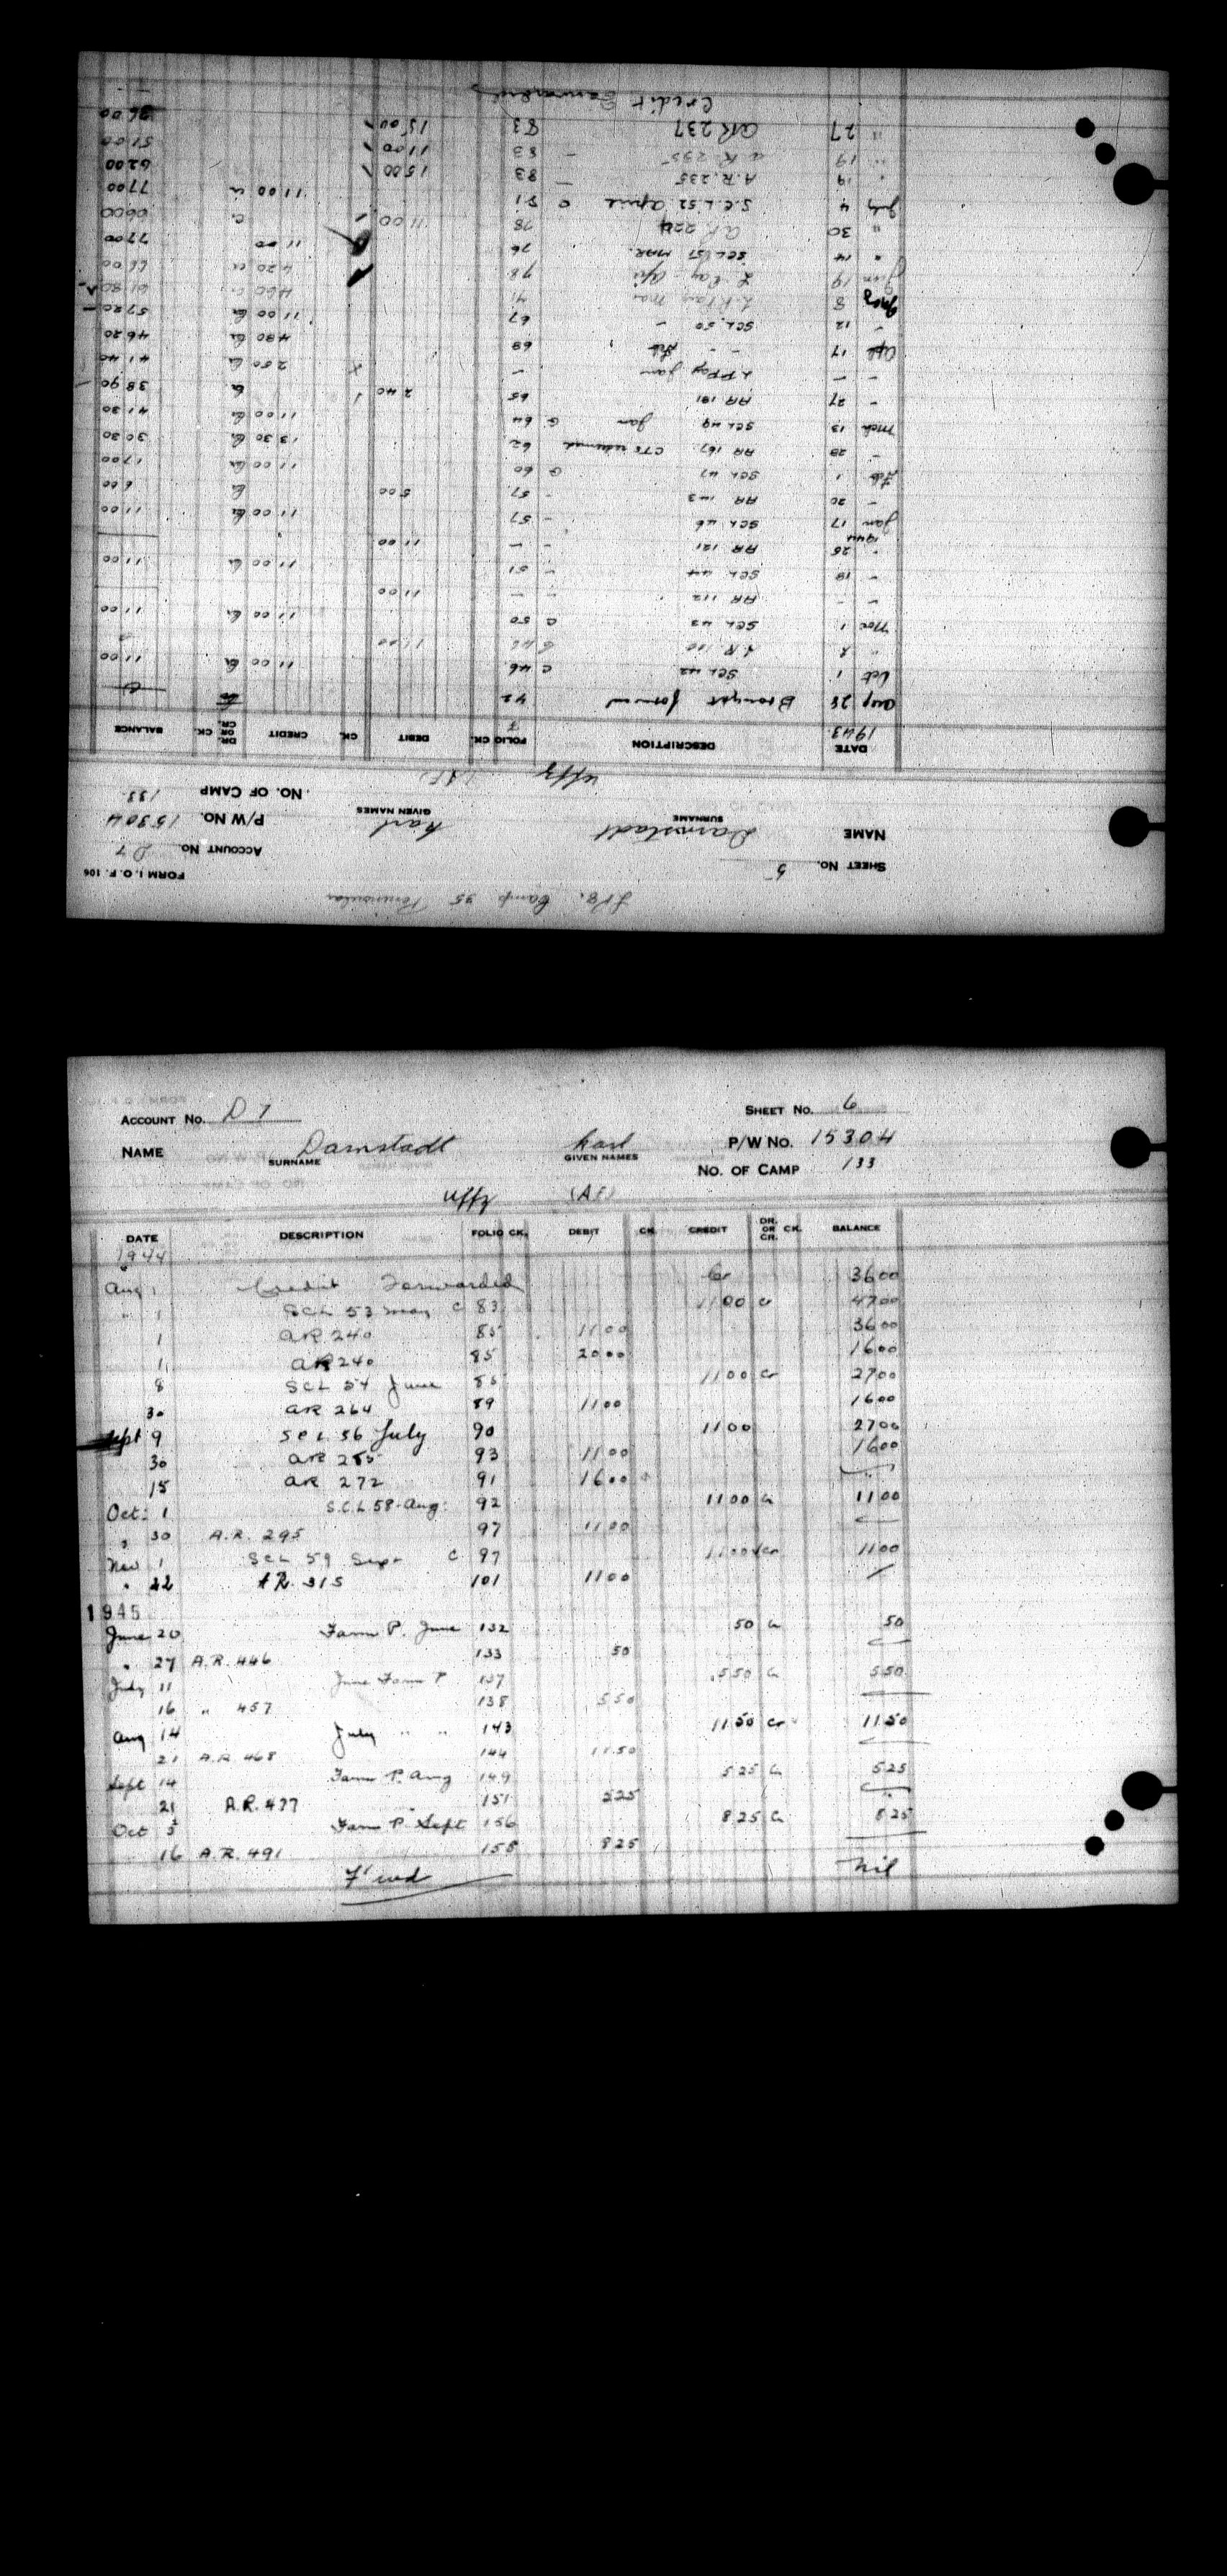 Trs. Camp 35 Peninsular
FORM I.O.F. 106
SHEET NO. 5 ACCOUNT NO. D7
NAME Darmstadt Karl P/W NO. 15304
SURNAME GIVEN NAMES NO. OF CAMP 133
Uffz
DATE DESCRIPTION FOLIO CK. DEBIT CK. CREDIT DR. OR CR. CK. BALANCE
1943
Aug 28 Brought forward 42
Oct 1 SCL 42 C 46 11 00 Cr 11 00
" 2 A.R. 100 11 00
Nov 1 SCL 43 C 50 11 00 Cr 11 00
- - AR 112 - - 11 00
- 18 SCL 44 - 51 11 00 Cr 11 00
" 26 AR 121 - - 11 00
1944
Jan 17 SCL 46 - 57 11 00 Cr 11 00
- 20 AR 143 - 57 5 00 Cr 6 00
Feb 1 SCL 47 G 60 11 00 Cr 17 00
- 28 AR 167 CTS redeemed 62 13 30 Cr 30 30
Mch 13 SCL 49 Jan G 64 11 00 Cr 41 30
- 27 AR 181 65 2 40 Cr 38 90
- - L P Pay Jan - 2 50 Cr 41 40
Apl 17 - - Feb 68 4 80 Cr 46 20
- 12 SCL 50 - 67 11 00 Cr 57 20
May 8 L.P. Pay Mar 71 4 60 Cr 61 80
Jun 19 L Pay - Apr 78 4 20 Cr 66 00
" 14 SCL 51 MAR. 76 11 00 77 00
" 30 A.R. 224 78 11 00 Cr 66 00
July 4 S.C.L. 52 April C 81 11 00 Cr 77 00
" 19 A.R. 235 - 83 15 00 62 00
" 19 A.R. 235 - 83 11 00 51 00
" 27 AR 237 83 15 00 36 00
Credit Forwarded
ACCOUNT NO. D7 SHEET NO. 6
NAME Darmstadt Karl P/W NO. 15304
SURNAME GIVEN NAMES NO. OF CAMP 133
Uffz (AF)
DATE DESCRIPTION FOLIO CK. DEBIT CK. CREDIT DR. OR CR. CK. BALANCE
1944
Aug 1 Credit Forwarded Cr 36 00
" 1 SCL 53 may C 83 11 00 Cr 47 00
1 AR 240 85 11 00 36 00
1 AR 240 85 20 00 16 00
8 SCL 54 June 85 11 00 Cr 27 00
30 AR 264 89 11 00 16 00
Sept 9 SCL 56 July 90 11 00 27 00
30 AR 285 93 11 00 16 00
15 AR 272 91 16 00
Oct: 1 S.C.L 58-Aug: 92 11 00 Cr 11 00
" 30 A.R. 295 97 11 00
Nov 1 SCL 59 Sept C 97 11 00 Cr 11 00
" 22 A.R. 315 101 11 00
1945
June 20 Farm P. June 132 50 Cr 50
" 27 A.R. 446 133 50
July 11 June Farm P 137 5 50 Cr 5 50
16 " 457 138 5 50
Aug 14 July " " 143 11 50 Cr 11 50
21 A.R. 468 144 11 50
Sept 14 Farm P. Aug 149 5 25 Cr 5 25
21 A.R. 477 151 5 25
Oct 5 Farm P. Sept 156 8 25 Cr 8 25
16 A.R. 491 158 8 25
F'wd Nil